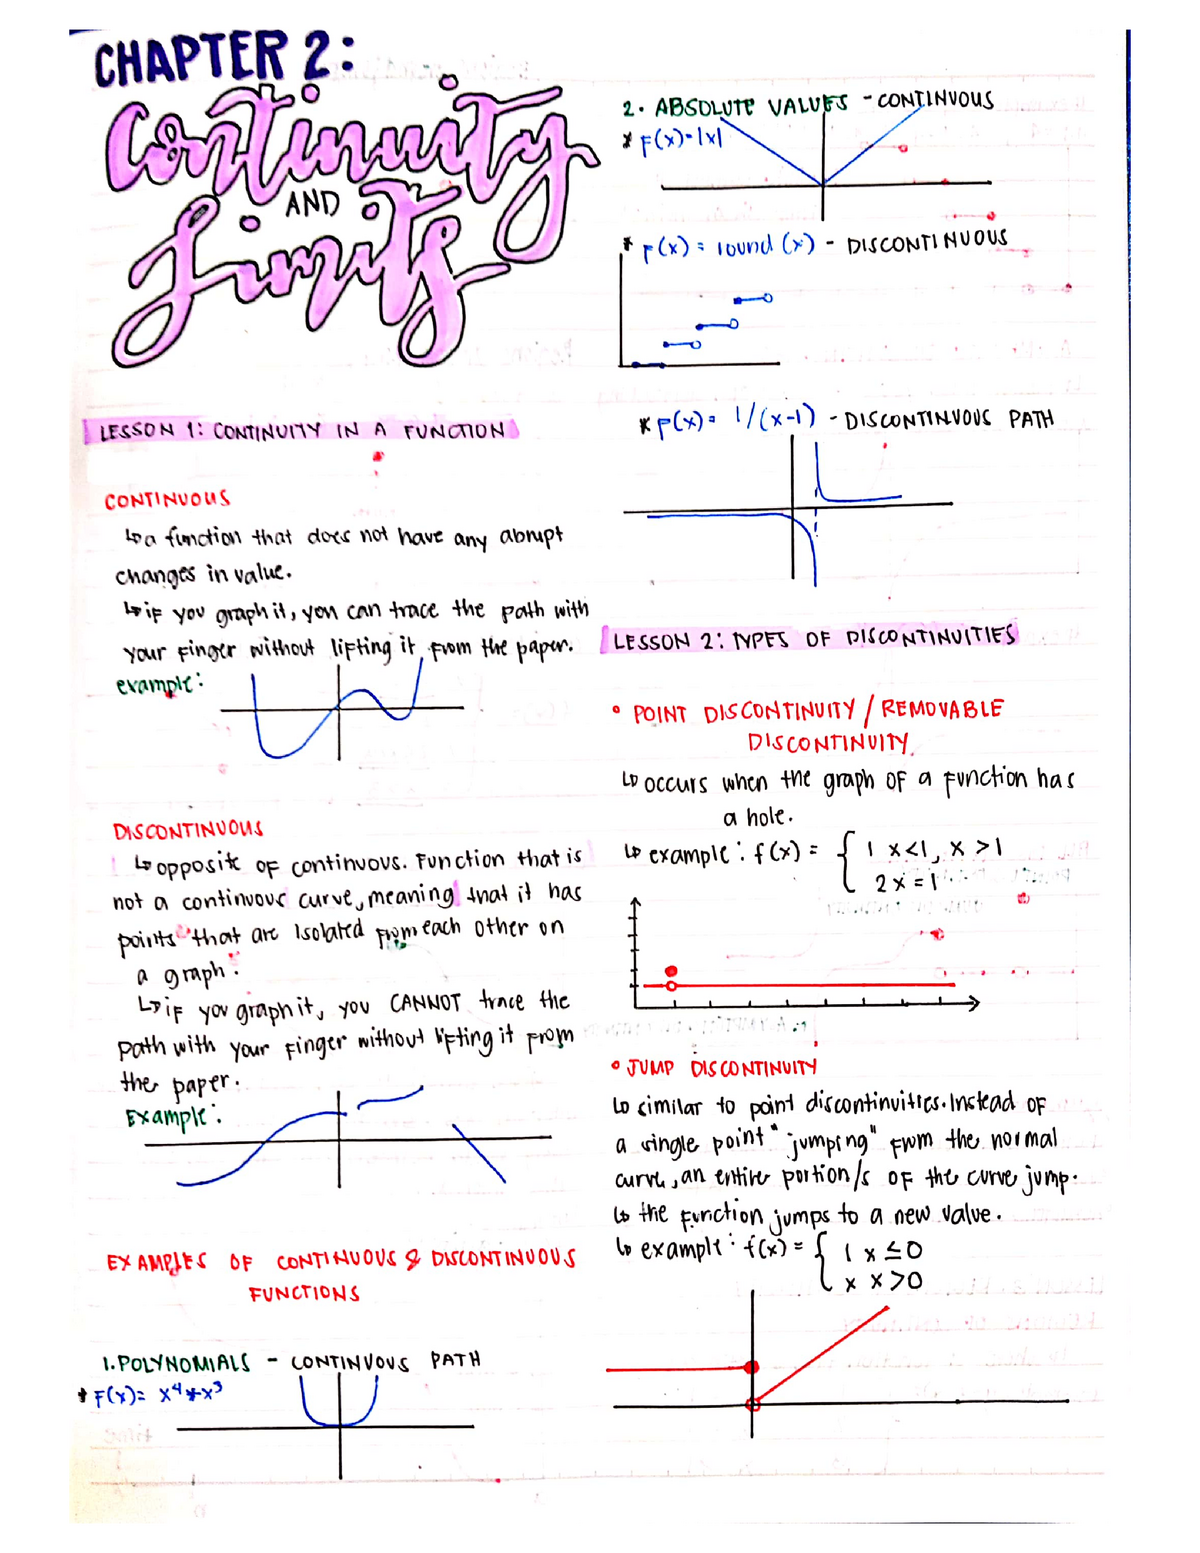 CHAPTER 2:
Continuity
AND
Limits
LESSON 1: CONTINUITY IN A FUNCTION
CONTINUOUS
↳ a function that does not have any abrupt
changes in value.
↳ if you graph it, you can trace the path with
your finger without lifting it from the paper.
example:
DISCONTINUOUS
↳ opposite of continuous. Function that is
not a continuous curve, meaning that it has
points that are isolated from each other on
a graph.
↳ if you graph it, you CANNOT trace the
path with your finger without lifting it from
the paper.
Example:
EXAMPLES OF CONTINUOUS & DISCONTINUOUS
FUNCTIONS
1. POLYNOMIALS - CONTINUOUS PATH
* F(x)= x⁴+x³
2. ABSOLUTE VALUES - CONTINUOUS
* F(x)=|x|
* F(x) = round (x) - DISCONTINUOUS
* F(x)= 1/(x-1) - DISCONTINUOUS PATH
LESSON 2: TYPES OF DISCONTINUITIES
• POINT DISCONTINUITY / REMOVABLE
DISCONTINUITY
↳ occurs when the graph of a function has
a hole.
↳ example: f(x) = { 1 x<1, x >1
2 x = 1
• JUMP DISCONTINUITY
↳ similar to point discontinuities. Instead of
a single point "jumping" from the normal
curve, an entire portion/s of the curve jump.
↳ the function jumps to a new value.
↳ example: f(x) = { 1 x ≤ 0
x x >0